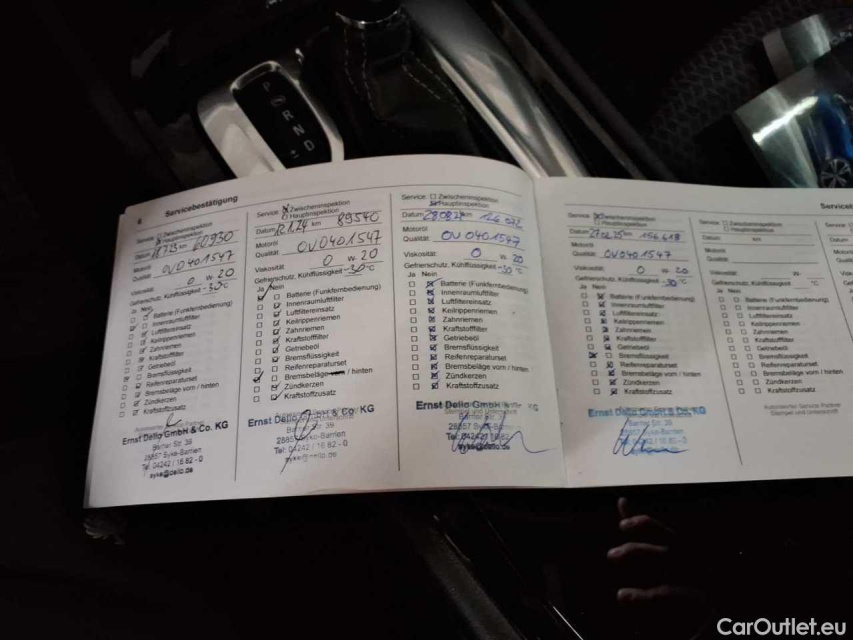 P
R
N
D
6
Servicebestätigung
Service: Zwischeninspektion
Hauptinspektion
Datum 60930
Motoröl
Qualität OV0401547
Viskosität: 0 w 20
Gefrierschutz, Kühlflüssigkeit -30°C
Ja Nein
Batterie (Funkfernbedienung)
Innenraumluftfilter
Luftfiltereinsatz
Keilrippenriemen
Zahnriemen
Kraftstofffilter
Getriebeöl
Bremsflüssigkeit
Reifenreparaturset
Bremsbeläge vorn / hinten
Zündkerzen
Kraftstoffzusatz
Ernst Dello GmbH & Co. KG
Barrier Str. 39
28857 Syke-Barrien
Tel. 04242 / 16 82 - 0
syke@dello.de
Service: Zwischeninspektion
Hauptinspektion
Datum 12.1.24 km 89540
Motoröl
Qualität: OV0401547
Viskosität: 0 w 20
Gefrierschutz, Kühlflüssigkeit -30°C
Ja Nein
Batterie (Funkfernbedienung)
Innenraumluftfilter
Luftfiltereinsatz
Keilrippenriemen
Zahnriemen
Kraftstofffilter
Getriebeöl
Bremsflüssigkeit
Reifenreparaturset
Bremsbeläge / hinten
Zündkerzen
Kraftstoffzusatz
Ernst Dello GmbH & Co. KG
Barrier Str. 39
28857 Syke-Barrien
Tel: 04242 / 16 82 - 0
syke@dello.de
Service: Zwischeninspektion
Hauptinspektion
Datum km
Motoröl
Qualität: OV0401547
Viskosität: 0 w 20
Gefrierschutz, Kühlflüssigkeit -30°C
Ja Nein
Batterie (Funkfernbedienung)
Innenraumluftfilter
Luftfiltereinsatz
Keilrippenriemen
Zahnriemen
Kraftstofffilter
Getriebeöl
Bremsflüssigkeit
Reifenreparaturset
Bremsbeläge vorn / hinten
Zündkerzen
Kraftstoffzusatz
Ernst Dello GmbH KG
28857 Syke-Barrien
Tel: 04242 / 16 82
syke@dello.de
Service: Zwischeninspektion
Hauptinspektion
Datum km 156.618
Motoröl
Qualität: OV0401547
Viskosität: 0 w 20
Gefrierschutz, Kühlflüssigkeit -30°C
Ja Nein
Batterie (Funkfernbedienung)
Innenraumluftfilter
Luftfiltereinsatz
Keilrippenriemen
Zahnriemen
Kraftstofffilter
Getriebeöl
Bremsflüssigkeit
Reifenreparaturset
Bremsbeläge vorn / hinten
Zündkerzen
Kraftstoffzusatz
Ernst Dello GmbH & Co. KG
Barrier Str. 39
28857 Syke-Barrien
Service: Zwischeninspektion
Hauptinspektion
Datum km
Motoröl
Qualität:
Viskosität: w
Gefrierschutz, Kühlflüssigkeit °C
Ja Nein
Batterie (Funkfernbedienung)
Innenraumluftfilter
Luftfiltereinsatz
Keilrippenriemen
Zahnriemen
Kraftstofffilter
Getriebeöl
Bremsflüssigkeit
Reifenreparaturset
Bremsbeläge vorn / hinten
Zündkerzen
Kraftstoffzusatz
Autorisierter Service Partner
Stempel und Unterschrift
Service:
Datum
Motoröl
Qualität:
Viskosität:
Ja
CarOutlet.eu